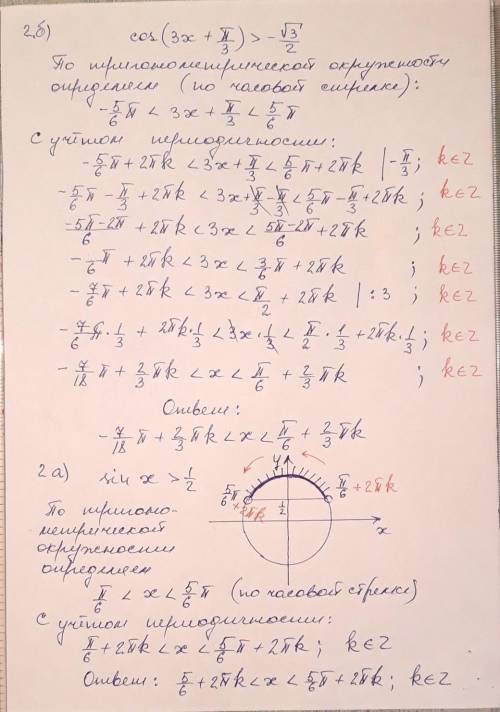 2б) cos(3x + π/3) > -√3/2
По тригонометрической окружности
определяем (по часовой стрелке):
-5/6π < 3x + π/3 < 5/6π
С учётом периодичности:
-5/6π + 2πk < 3x + π/3 < 5/6π + 2πk | -π/3; k∈Z
-5/6π - π/3 + 2πk < 3x + π/3 - π/3 < 5/6π - π/3 + 2πk ; k∈Z
-5π-2π/6 + 2πk < 3x < 5π-2π/6 + 2πk ; k∈Z
-7/6π + 2πk < 3x < 3/6π + 2πk ; k∈Z
-7/6π + 2πk < 3x < π/2 + 2πk | :3 ; k∈Z
-7/6π·1/3 + 2πk·1/3 < 3x·1/3 < π/2·1/3 + 2πk·1/3; k∈Z
-7/18π + 2/3πk < x < π/6 + 2/3πk ; k∈Z
Ответ:
-7/18π + 2/3πk < x < π/6 + 2/3πk
2а) sin x > 1/2
y
5/6π + 2πk
π/6 + 2πk
1/2
x
По тригоно-
метрической
окружности
определяем
π/6 < x < 5/6π (по часовой стрелке)
С учётом периодичности:
π/6 + 2πk < x < 5/6π + 2πk; k∈Z
Ответ: 5/6 + 2πk < x < 5/6π + 2πk; k∈Z